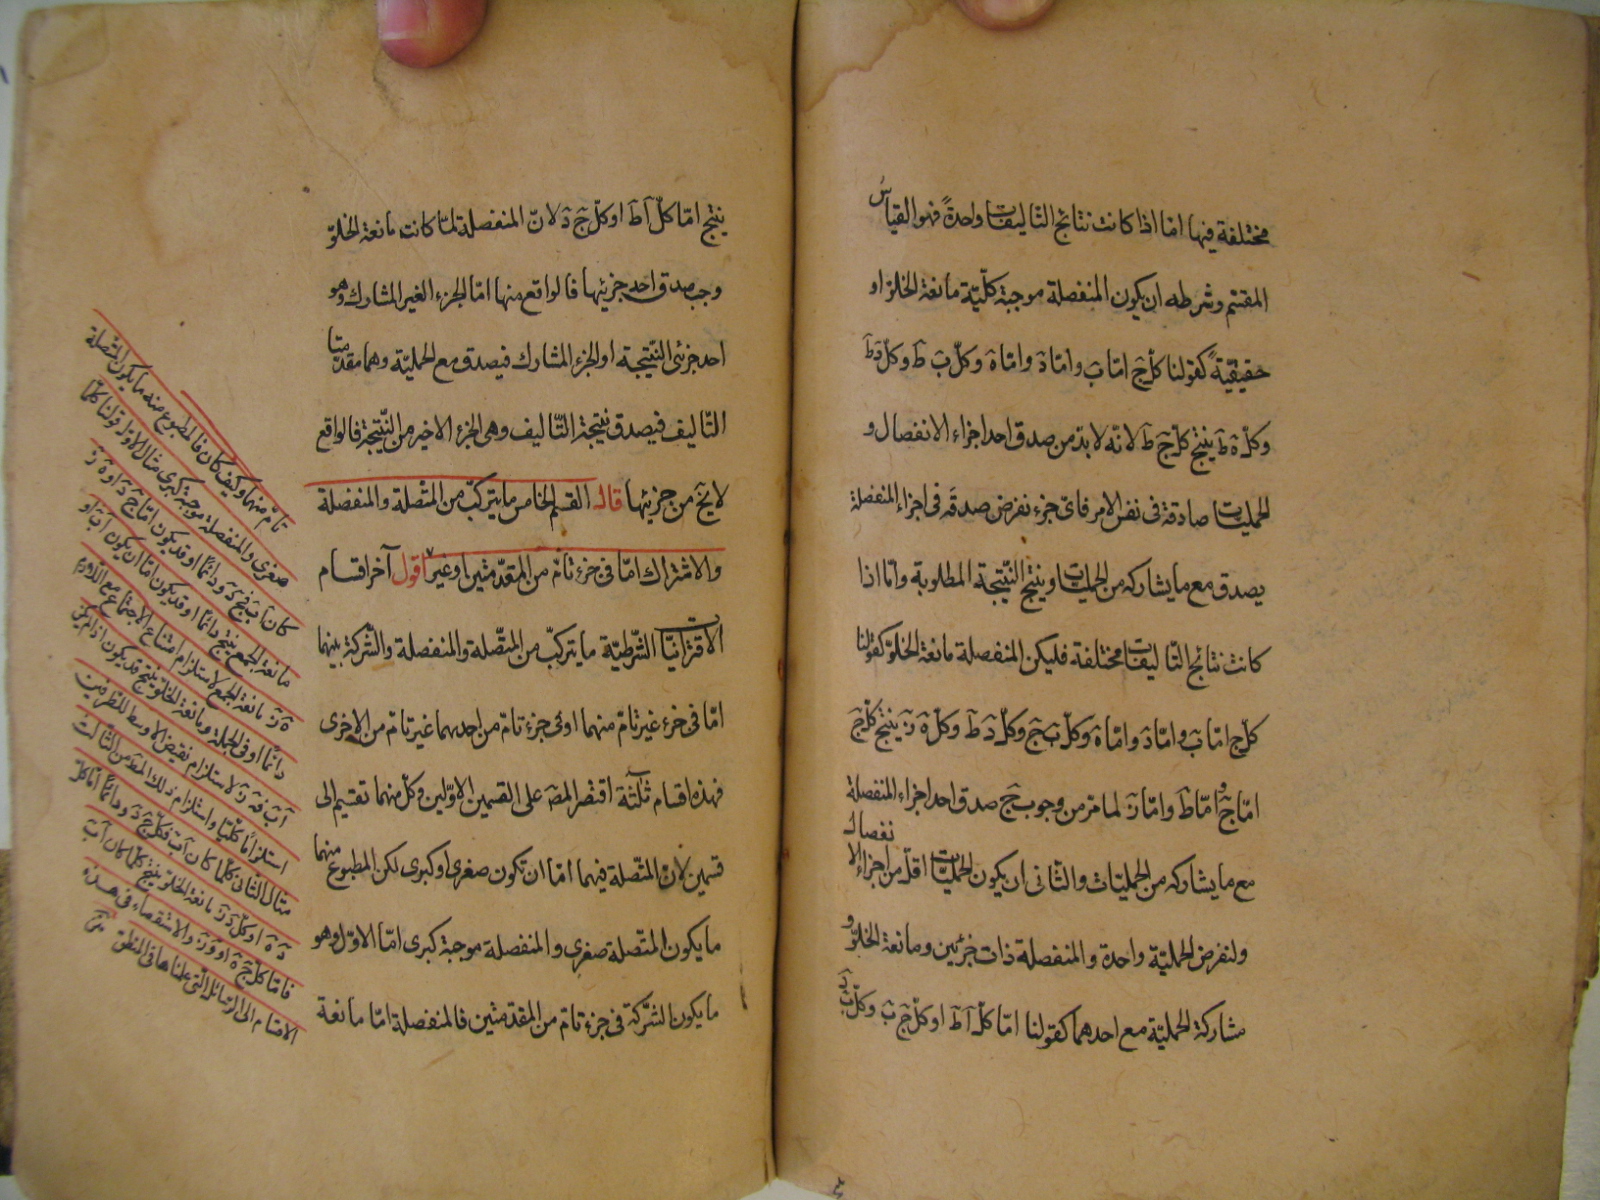 مختلفة فيها امّا اذا كانت نتائج التّاليفات واحدةً فهو القياس
المقسّم وشرطه ان يكون المنفصلة موجبة كلّيّة مانعة الخلوّ او
حقيقيّةً كقولنا كلّ جَ امّا بَ وامّا دَ وامّا هَ وكلّ بَ طَ وكلّ دَ طَ
وكلّ هَ طَ ينتج كلّ جَ طَ لانّه لا بدّ من صدق احد اجزاء الانفصال و
الحمليّات صادقة فى نفس الامر فاىّ جزء نفرض صدقه فى اجزاء المنفصلة
يصدق مع ما يشاركه من الحمليّات وينتج النّتيجة المطلوبة وامّا اذا
كانت نتائج التّاليفات مختلفة فليكن المنفصلة مانعة الخلوّ كقولنا
كلّ ج امّا بَ وامّا دَ وامّا هَ وكلّ بَ جَ وكلّ دَ طَ وكلّ هَ زَ ينتج كلّ جَ
امّا جَ وامّا طَ وامّا زَ لما مرّ من وجوب صدق احد اجزاء المنفصلة
مع ما يشاركه من الحمليّات والثّانى ان يكون الحمليّات اقلّ من اجزاء الانفصال
ولنفرض الحمليّة واحدة والمنفصلة ذات جزئين ومانعة الخلوّ و
مشاركة الحمليّة مع احدهما كقولنا امّا كلّ اَ طَ او كلّ جَ بَ وكلّ بَ دَ
ينتج امّا كلّ اَ طَ او كلّ جَ دَ لانّ المنفصلة لمّا كانت مانعة الخلوّ
وجب صدق احد جزئيها فالواقع منها امّا الجزء الغير المشارك وهو
احد جزئى النّتيجة او الجزء المشارك فيصدق مع الحمليّة وهما مقدّمتا
التّاليف فيصدق نتيجة التّاليف وهى الجزء الاخير من النّتيجة فالواقع
لايخ من جزئيها قال القسم الخامس ما يتركّب من المتّصلة والمنفصلة
والاشتراك امّا فى جزء تامّ من المقدّمتين او غير اقول آخر اقسام
الاقترانيّات الشّرطيّة ما يتركّب من المتّصلة والمنفصلة والشّركة بينهما
امّا فى جزء غير تامّ منهما او فى جزء تامّ من احدهما غير تامّ من الاخرى
فهذه اقسام ثلثة اقتصر المصَ على القسمين الاوّلين وكلّ منهما تقسيم الى
قسمين لانّ المتّصلة فيهما امّا ان تكون صغرى او كبرى لكن المطبوع منهما
ما يكون المتّصلة صغرى والمنفصلة موجبة كبرى امّا الاوّل وهو
ما يكون الشّركة فى جزء تامّ من المقدّمتين فالمنفصلة امّا مانعة
تامّ منهما وكيف كان فالمطبوع منه ما يكون المتّصلة
صغرى والمنفصلة موجبة كبرى مثال الاوّل قولنا كلّما
كان اَ بَ فجَ دَ ودائمًا او قد يكون امّا جَ دَ او هَ زَ
مانعة الجمع ينتج دائمًا او قد يكون امّا ان يكون اَ بَ او
هَ زَ مانعة الجمع لاستلزام امتناع الاجتماع مع اللازم
دائمًا او فى الجملة ومانعة الخلوّ ينتج قد يكون اذا لم يكن
اَ بَ فهَ زَ لاستلزام نقيض الاوسط للطّرفين
استلزامًا كلّيّا واستلزام ذلك المطَ من الثّالث
مثال الثّانى كلّما كان اَ بَ فكلّ جَ دَ ودائمًا امّا كلّ
دَ هَ او كلّ دَ زَ مانعة الخلوّ ينتج كلّما كان اَ بَ
فامّا كلّ جَ هَ او وَ زَ والاستقصاء فى هذه
الاقسام الى الرّسائل الّتى عملناها فى المنطق